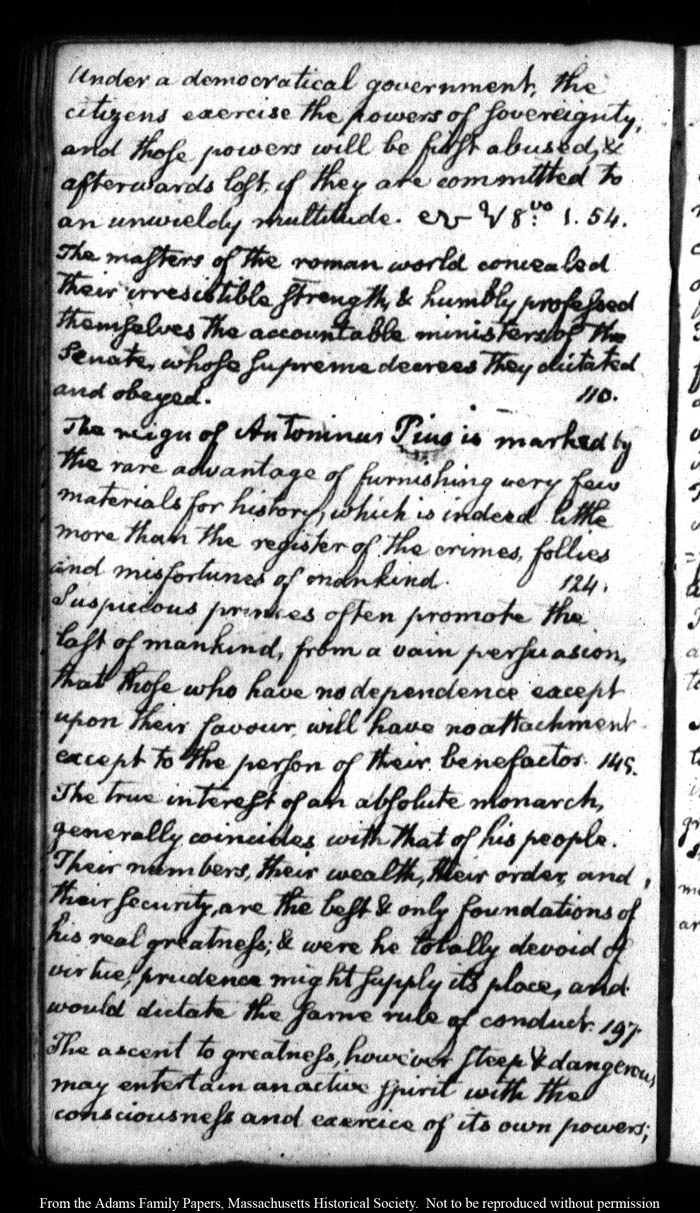 Under a democratical government, the
citizens exercise the powers of sovereignty,
and those powers will be first abused, &
afterwards lost, if they are committed to
an unwieldy multitude. 8.vo 1. 54.
The masters of the roman world concealed
their irresistible strength, & humbly professed
themselves the accountable ministers of the
Senate, whose supreme decrees they dictated
and obeyed. 110.
The reign of Antoninus Pius is marked by
the rare advantage of furnishing very few
materials for history, which is indeed little
more than the register of the crimes, follies
and misfortunes of mankind. 124.
Suspicious princes often promote the
last of mankind, from a vain persuasion,
that those who have no dependence except
upon their favour, will have no attachment
except to the person of their benefactor. 145.
The true interest of an absolute monarch,
generally coincides with that of his people.
Their numbers, their wealth, their order, and
their security, are the best & only foundations of
his real greatness; & were he totally devoid of
virtue, prudence might supply its place, and
would dictate the same rule of conduct. 197.
The ascent to greatness, however steep & dangerous
may entertain an active spirit with the
consciousness and exercice of its own powers;
From the Adams Family Papers, Massachusetts Historical Society. Not to be reproduced without permission